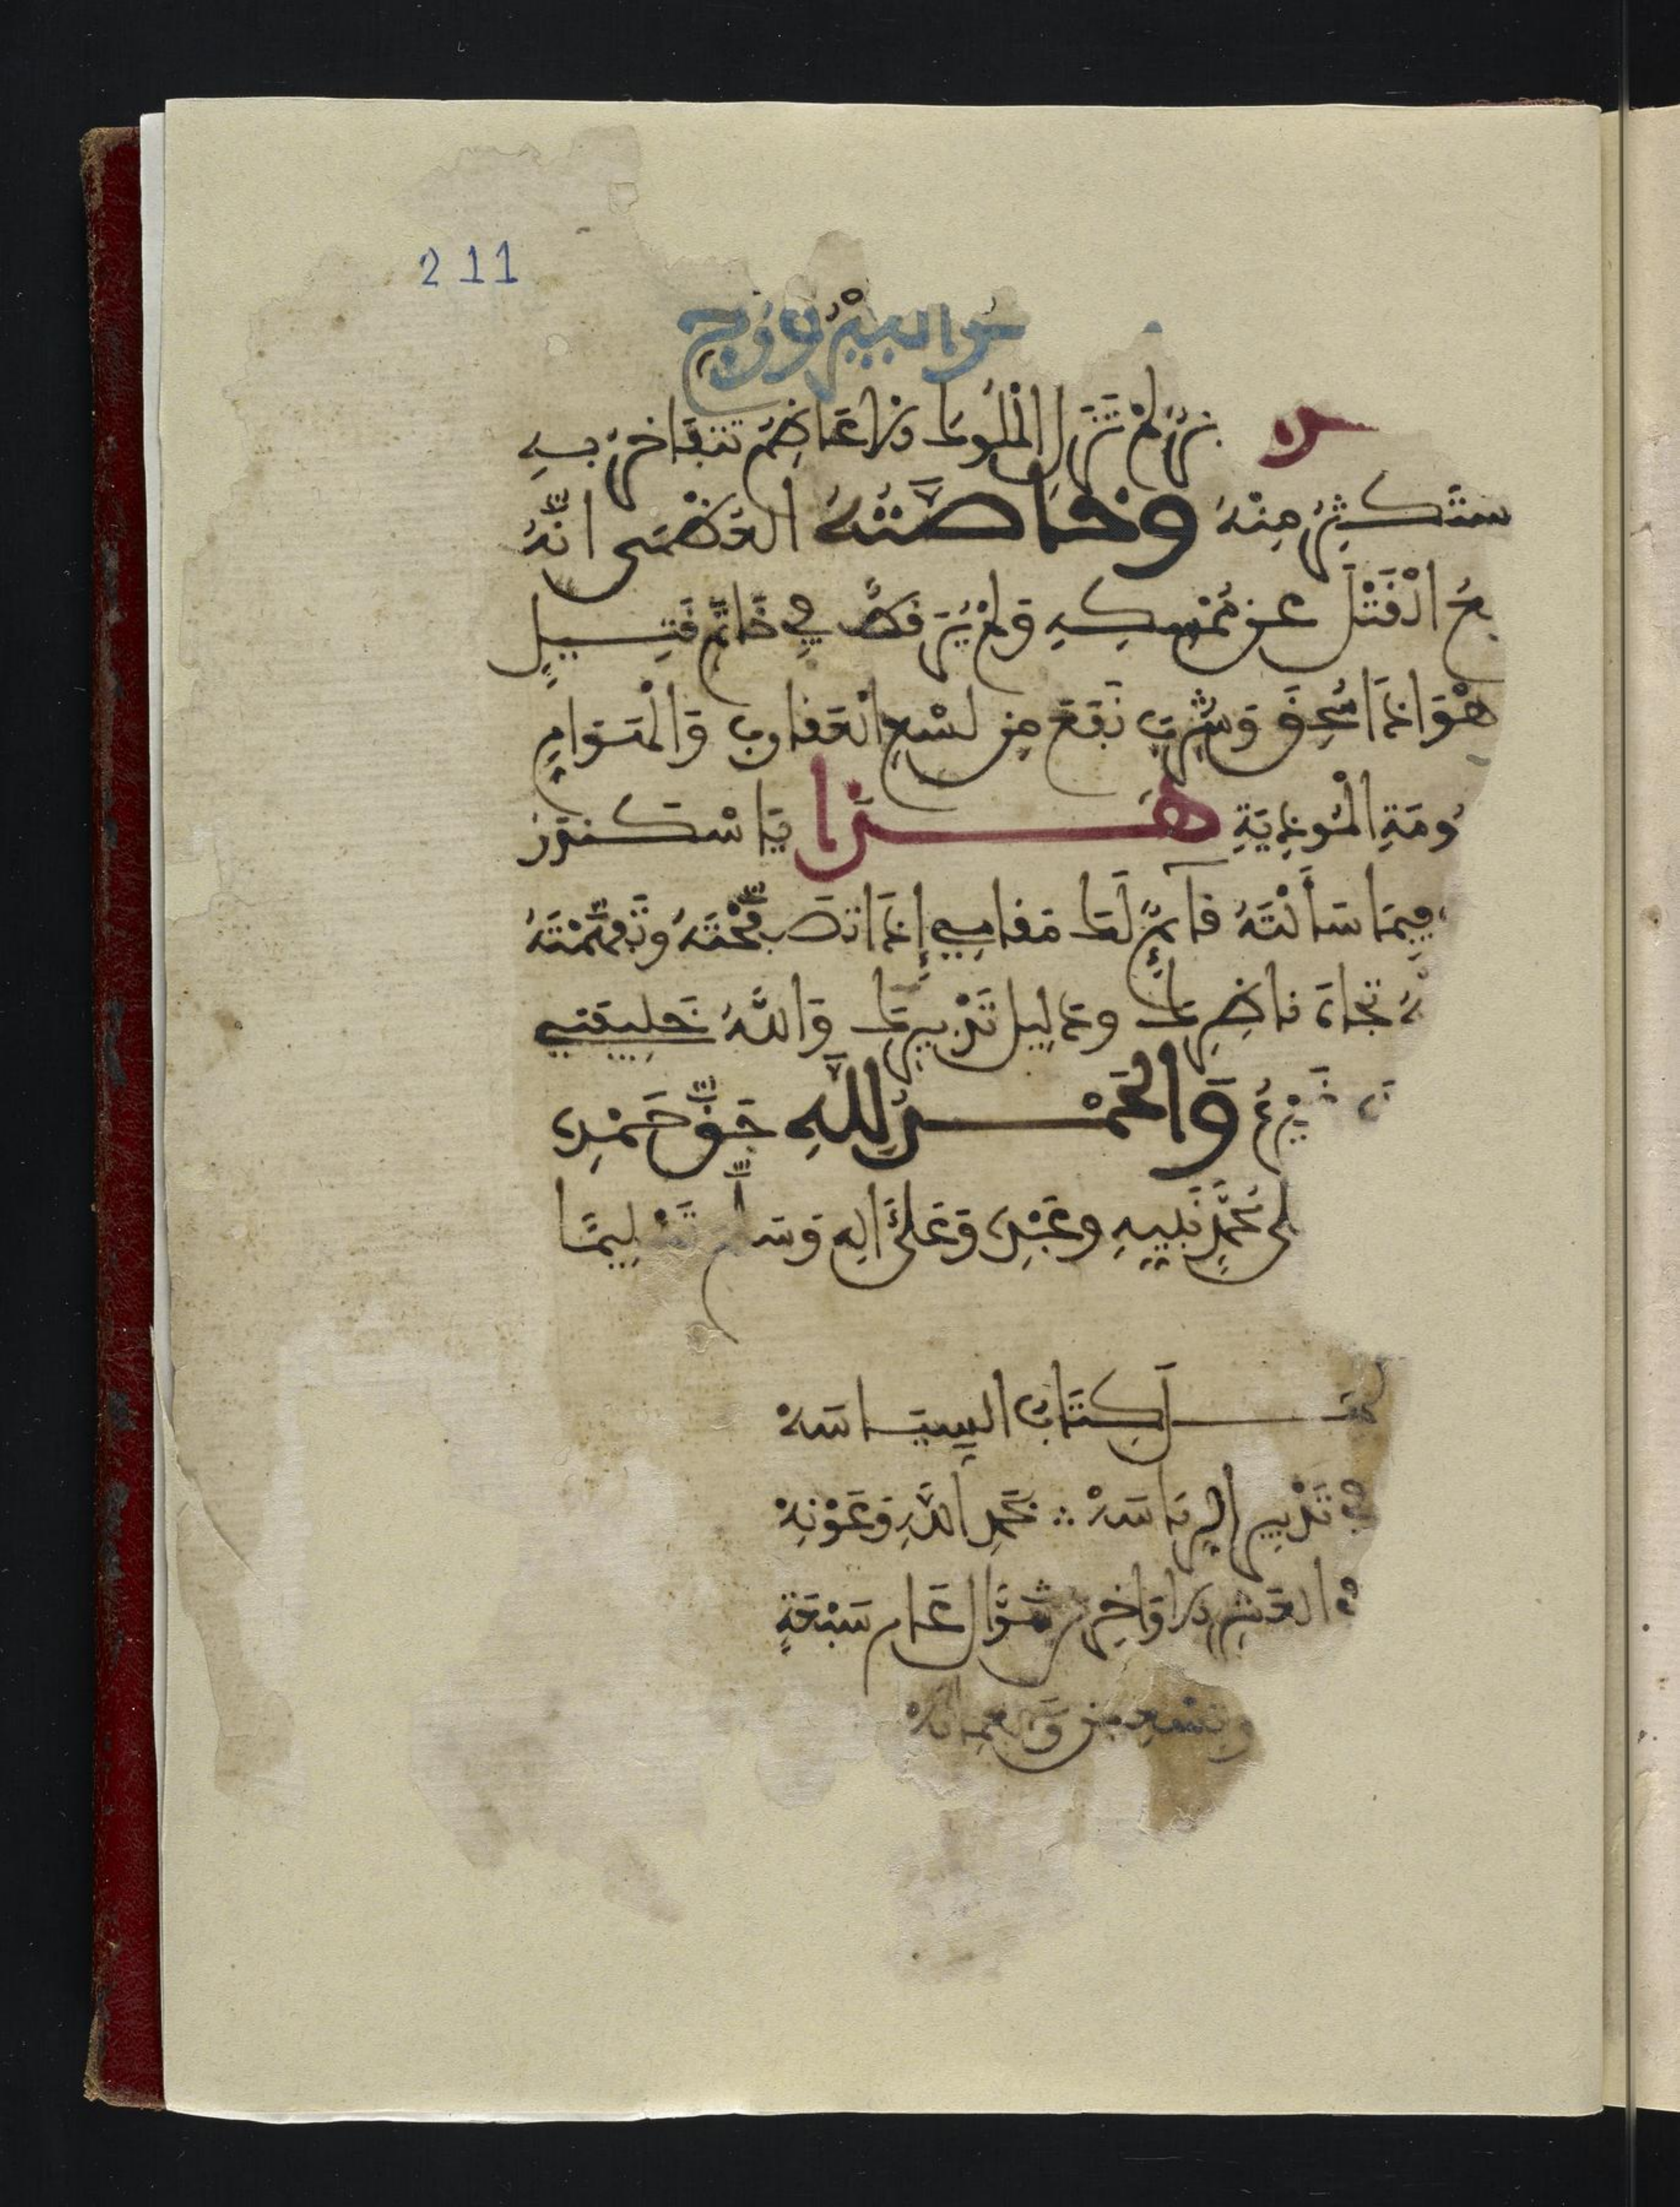 211
الفيروزج
لم تزل الملوك وزراعاظم تتفاخر به
ستكثر منه وخاصته العظمى انه
القتل عن ممسكه ولم ير قط في خاتم قتيل
وهو اذا سحق وشرب نفع من لسع العقارب والهوام
المؤذية هذا يا اسكندر
فيما سألته قائم لك مقامي إذا تصفحته وتفهمته
تجاه ناظرك ودليل تدبيرك والله خليفتي
والحمد لله حق حمده
على محمد نبيه وعبده وعلى اله وسلم تسليما
كمل كتاب السياسه
في تدبير الرياسه ∴ بحمد الله وعونه
في العشر الاواخر شوال عام سبعة
وتسعين